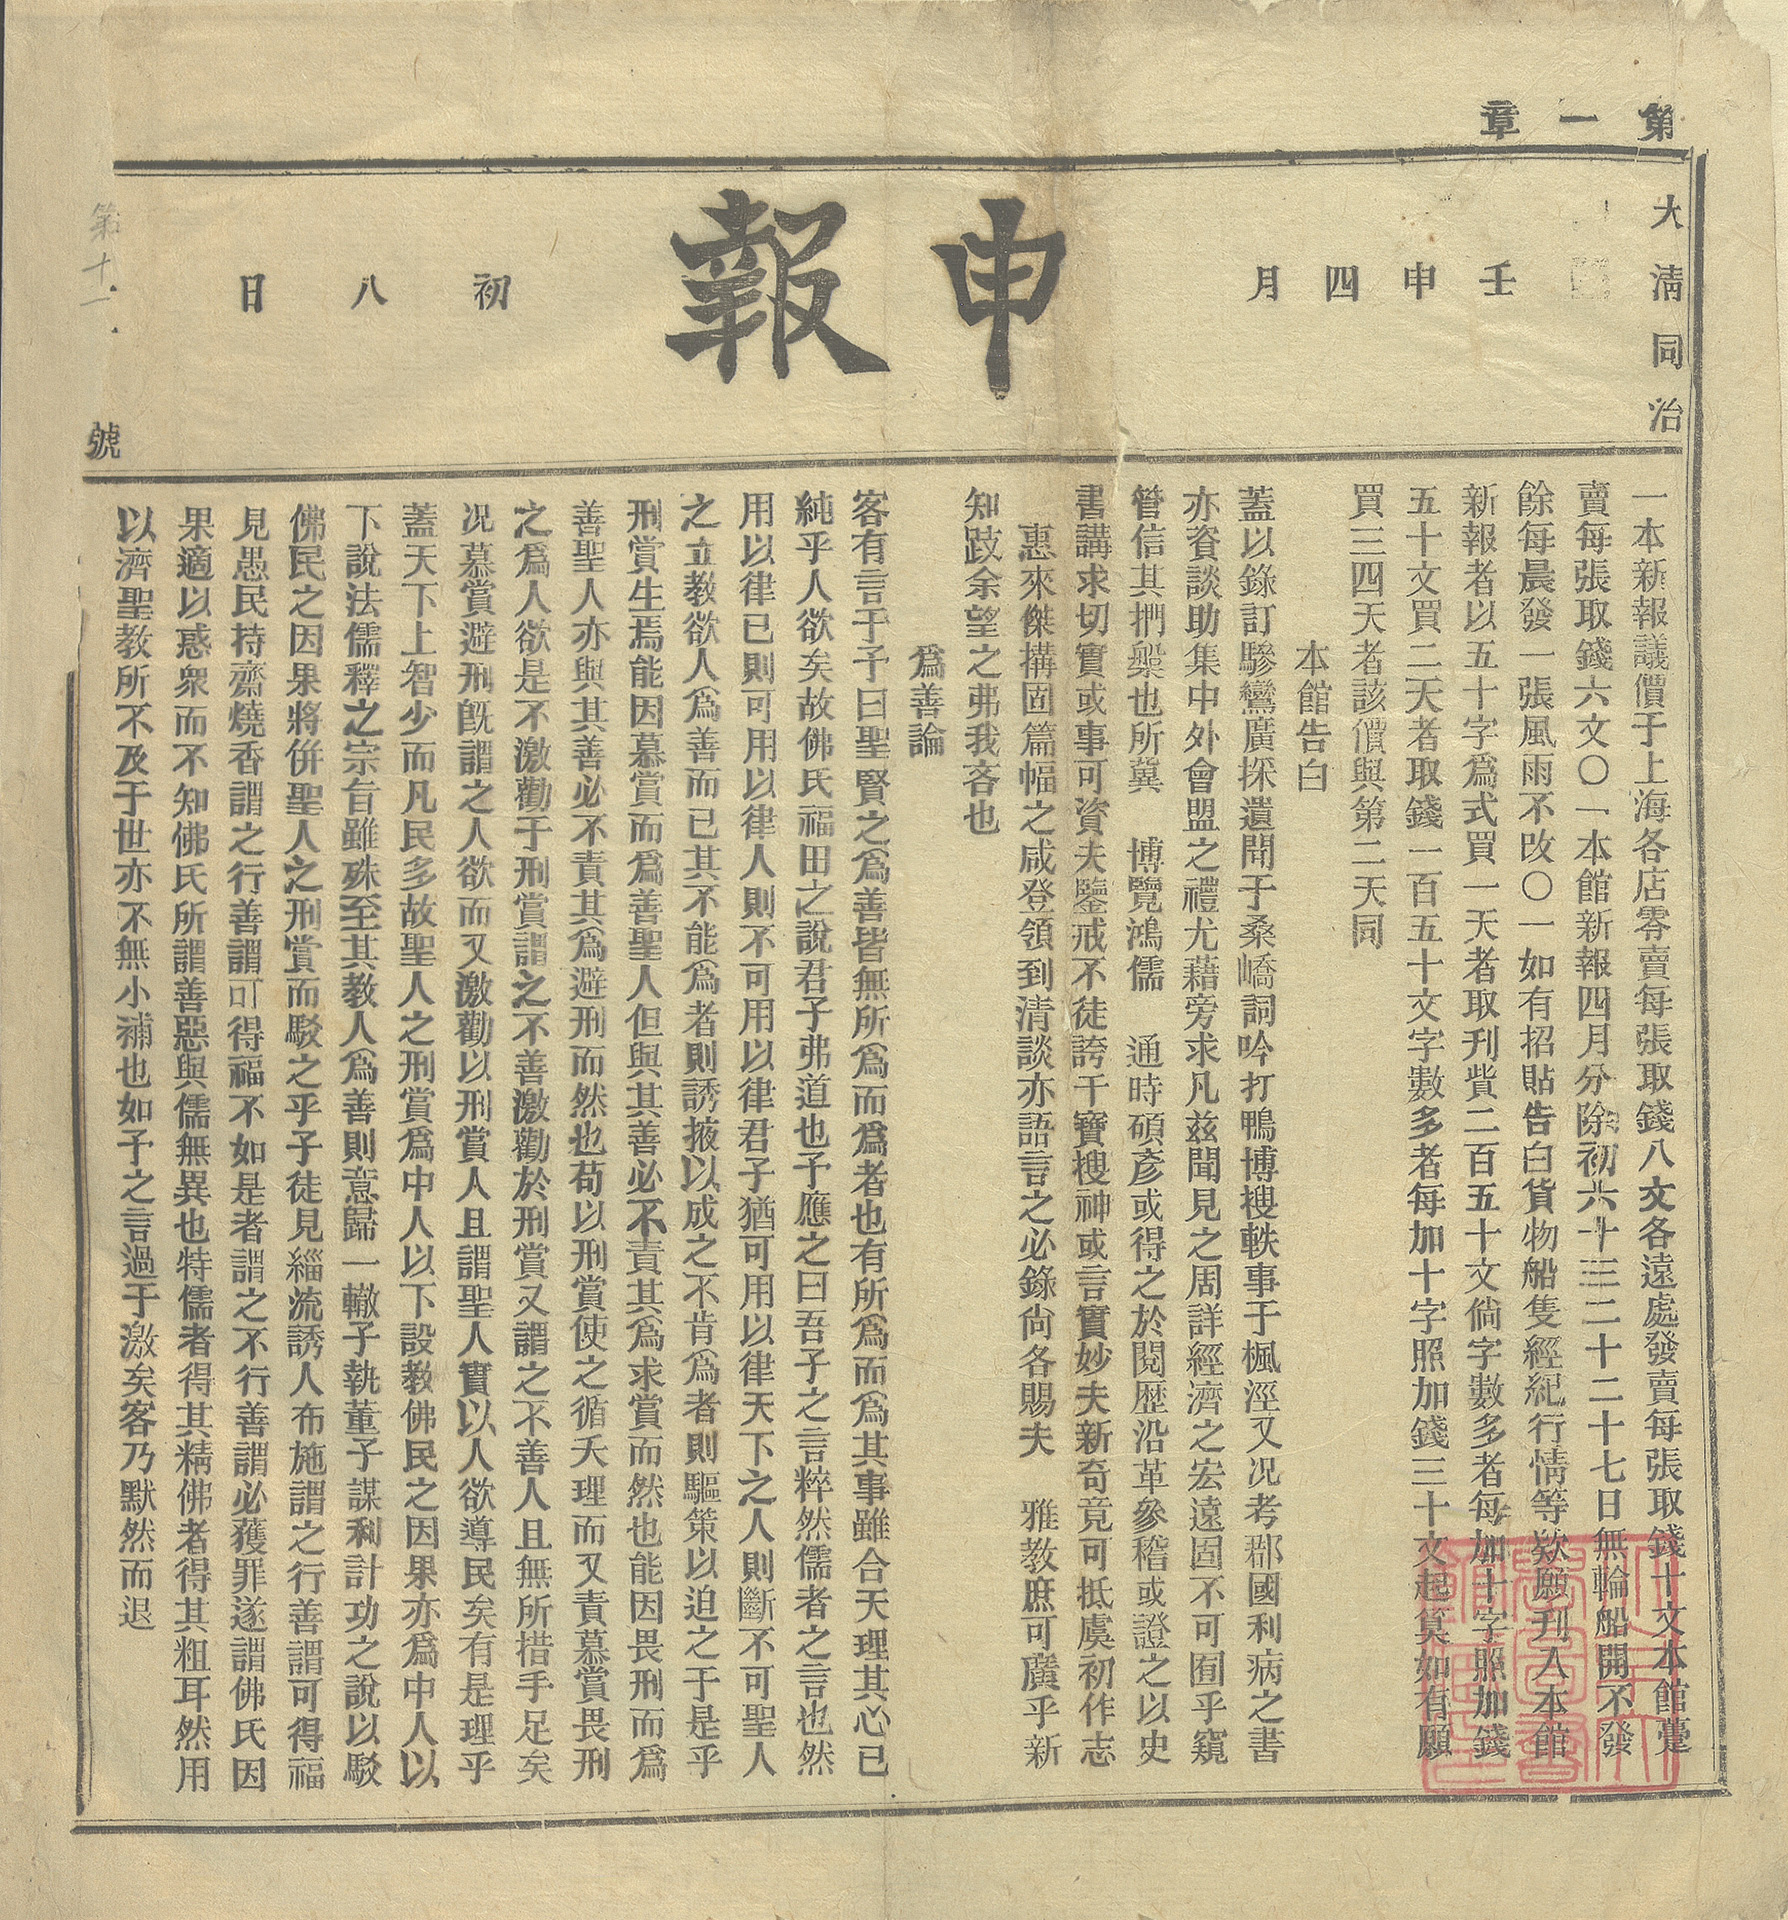 第一章
大清同治
壬申四月
申報
初八日
第十一
號
一本新報議價于上海各店零賣每張取錢八文各遠處發賣每張取錢十文本館躉
賣每張取錢六文〇一本館新報四月分除初六十三二十二十七日無輪船開不發
餘每晨發一張風雨不改〇一如有招貼告白貨物船隻經紀行情等欵願刋入本館
新報者以五十字爲式買一天者取刋貲二百五十文倘字數多者每加十字照加錢
五十文買二天者取錢一百五十文字數多者每加十字照加錢三十文起算如有願
買三四天者該價與第二天同
本館告白
蓋以錄訂驂鸞廣採遺聞于桑嶠詞吟打鴨博搜軼事于楓涇又况考郡國利病之書
亦資談助集中外會盟之禮尤藉旁求凡兹聞見之周詳經濟之宏遠固不可囿乎窺
管信其捫槃也所冀 博覽鴻儒 通時碩彥或得之於閱歷沿革參稽或證之以史
書講求切實或事可資夫鑒戒不徒誇干寶搜神或言實妙夫新奇竟可抵虞初作志
惠來傑搆固篇幅之咸登領到清談亦語言之必錄尙各賜夫 雅教庶可廣乎新
知跂余望之弗我吝也
爲善論
客有言于予曰聖賢之爲善皆無所爲而爲者也有所爲而爲其事雖合天理其心已
純乎人欲矣故佛氏福田之說君子弗道也予應之曰吾子之言粹然儒者之言也然
用以律已則可用以律人則不可用以律君子猶可用以律天下之人則斷不可聖人
之立教欲人爲善而已其不能爲者則誘掖以成之不肯爲者則驅策以迫之于是乎
刑賞生焉能因慕賞而爲善聖人但與其善必不責其爲求賞而然也能因畏刑而爲
善聖人亦與其善必不責其爲避刑而然也苟以刑賞使之循天理而又責慕賞畏刑
之爲人欲是不激勸于刑賞謂之不善激勸於刑賞又謂之不善人且無所措手足矣
况慕賞避刑旣謂之人欲而又激勸以刑賞人且謂聖人實以人欲導民矣有是理乎
蓋天下上智少而凡民多故聖人之刑賞爲中人以下設教佛民之因果亦爲中人以
下說法儒釋之宗旨雖殊至其教人爲善則意歸一轍子執董子謀利計功之說以駁
佛民之因果將併聖人之刑賞而駁之乎子徒見緇流誘人布施謂之行善謂可得福
見愚民持齋燒香謂之行善謂可得福不如是者謂之不行善謂必獲罪遂謂佛氏因
果適以惑衆而不知佛氏所謂善惡與儒無異也特儒者得其精佛者得其粗耳然用
以濟聖教所不及于世亦不無小補也如予之言過于激矣客乃默然而退